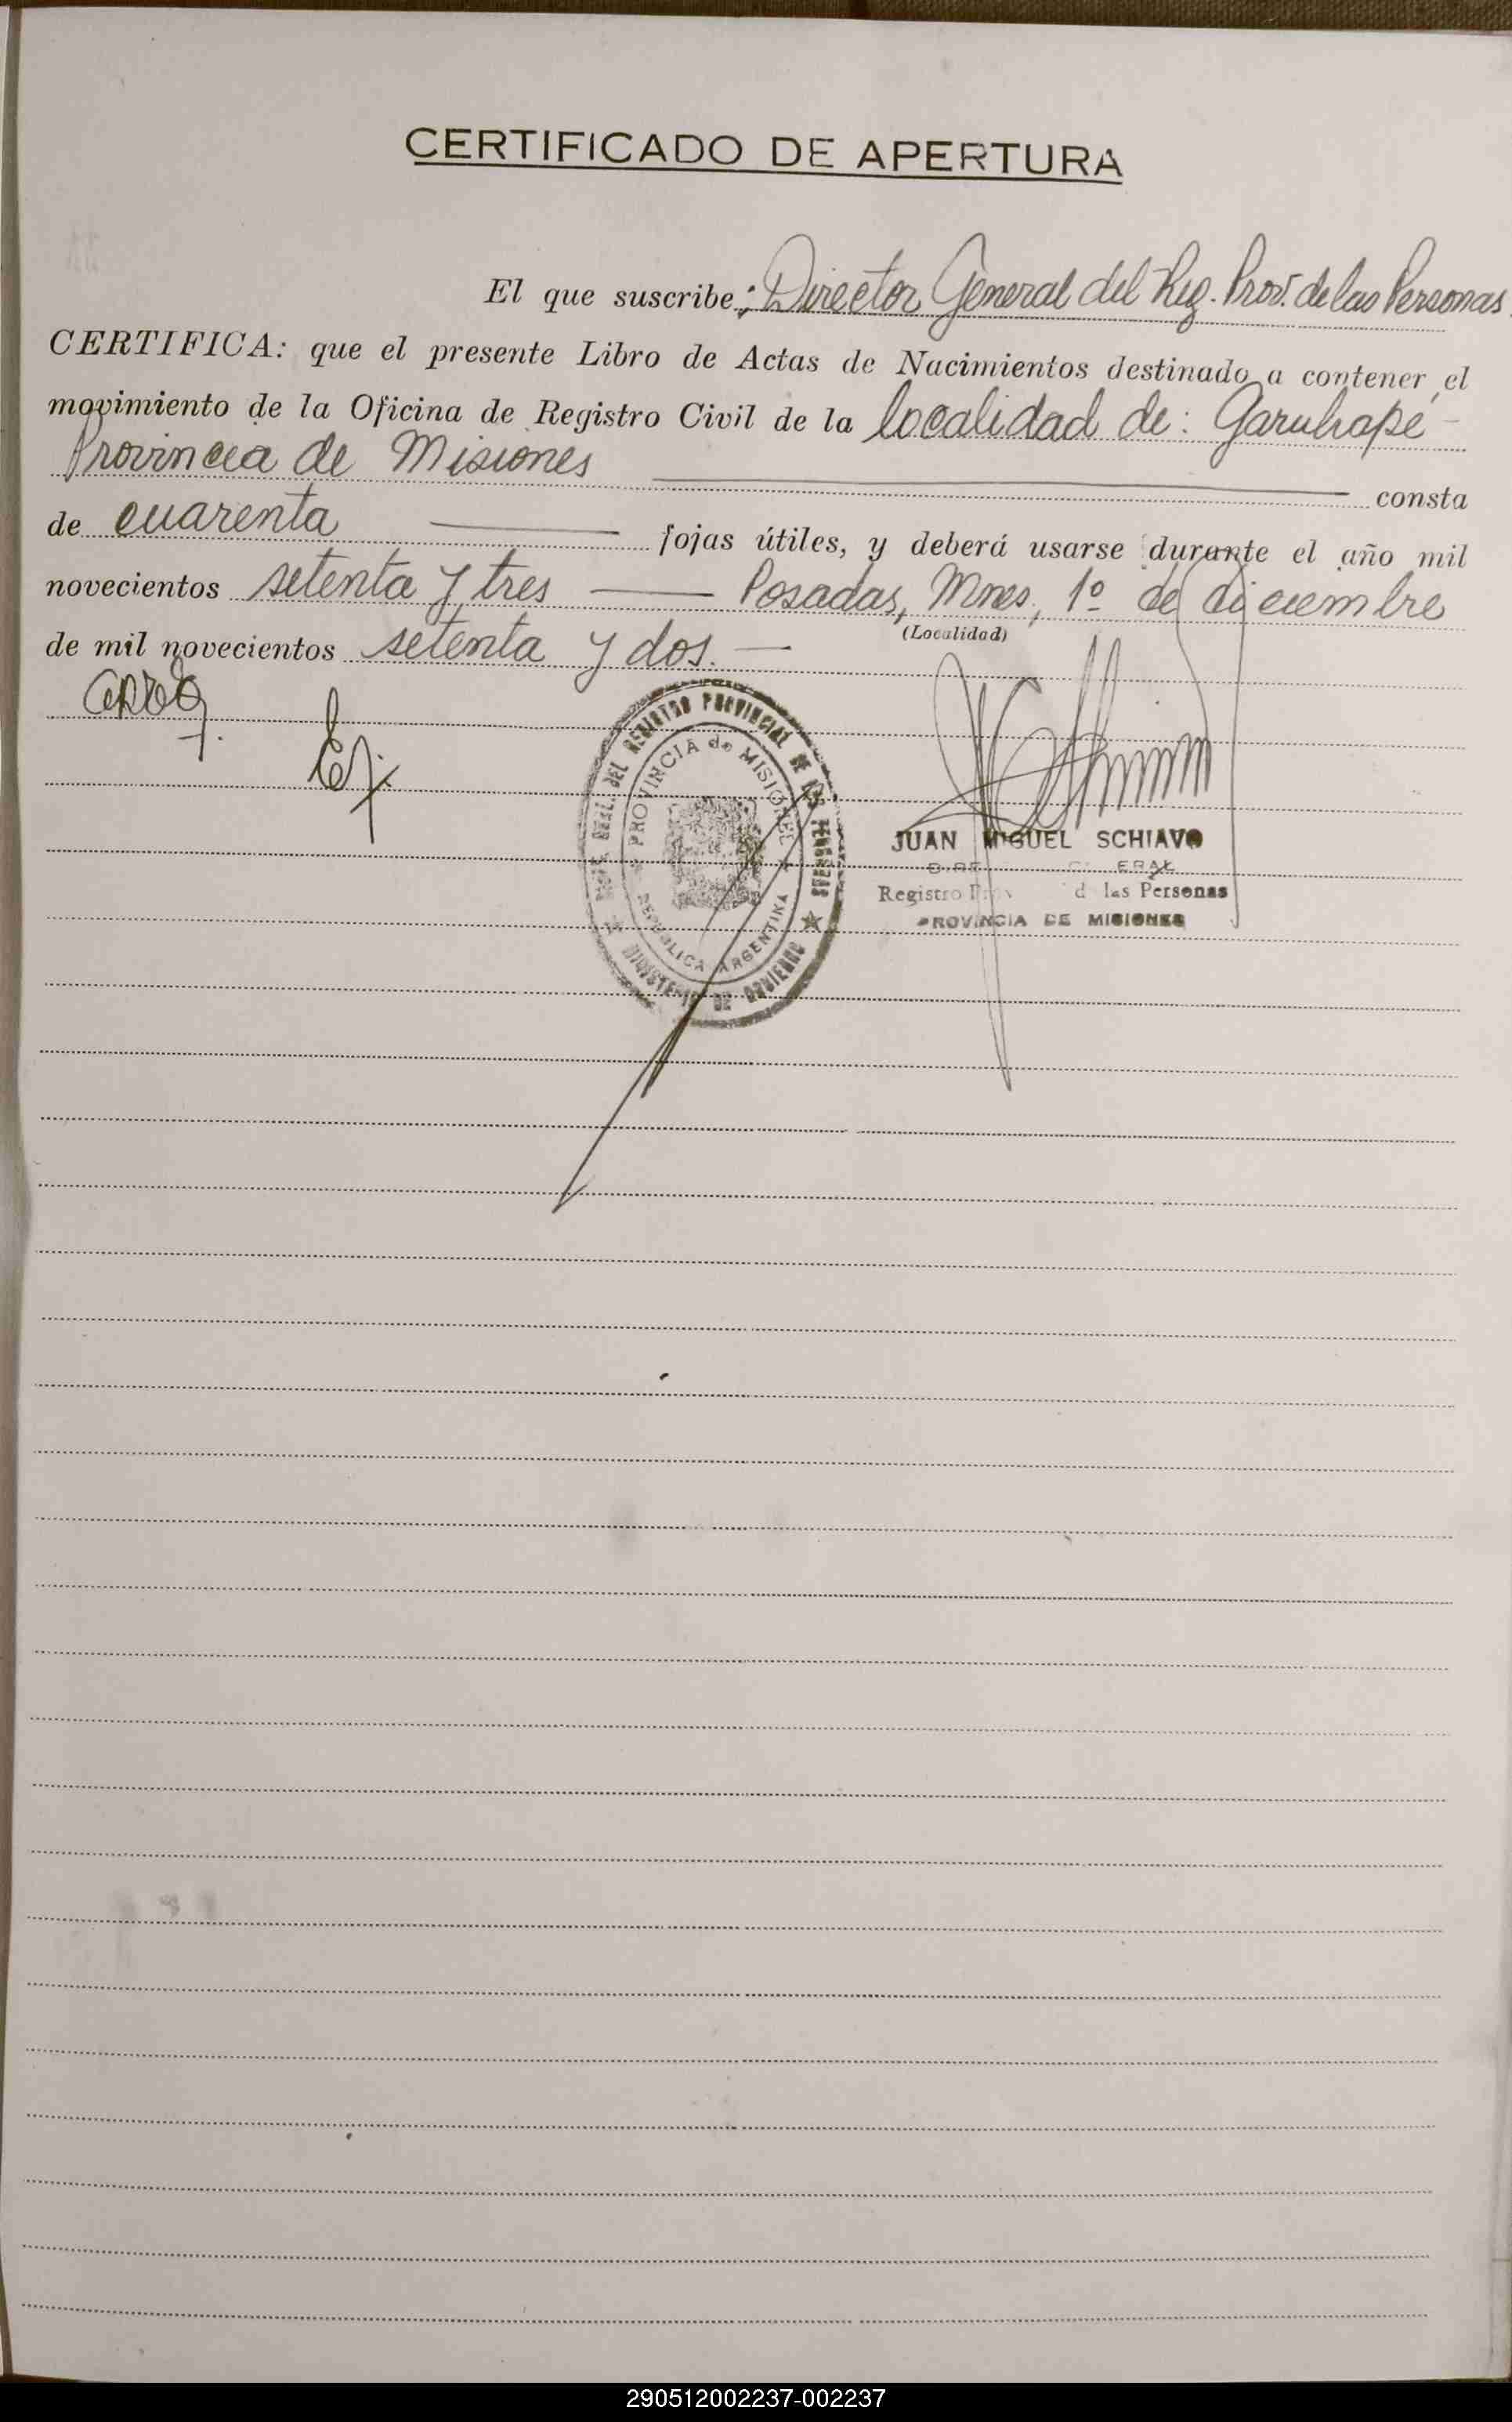 CERTIFICADO DE APERTURA
El que suscribe; Director General del Reg. Prov. de las Personas
CERTIFICA: que el presente Libro de Actas de Nacimientos destinado a contener el
movimiento de la Oficina de Registro Civil de la localidad de: Garuhapé -
Provincia de Misiones consta
de cuarenta fojas útiles, y deberá usarse durante el año mil
novecientos setenta y tres Posadas, Mnes, 1º de diciembre
(Localidad)
de mil novecientos setenta y dos. -
DEL REGISTRO PROVINCIAL DE LAS PERSONAS
PROVINCIA de MISIONES
REPUBLICA ARGENTINA
MINISTERIO DE GOBIERNO
JUAN MIGUEL SCHIAVO
Registro las Personas
PROVINCIA DE MISIONES
290512002237-002237